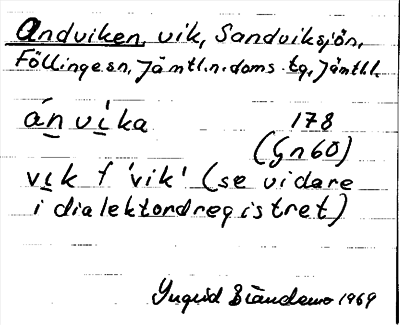 Andviken, vik, Sandviksjön,
Föllinge sn, Jämtl. n. doms. tg, Jämtl. l.
án vika
178
(Gn 60)
vik f 'vik' (se vidare
i dialektordregistret)
Ingrid 1969